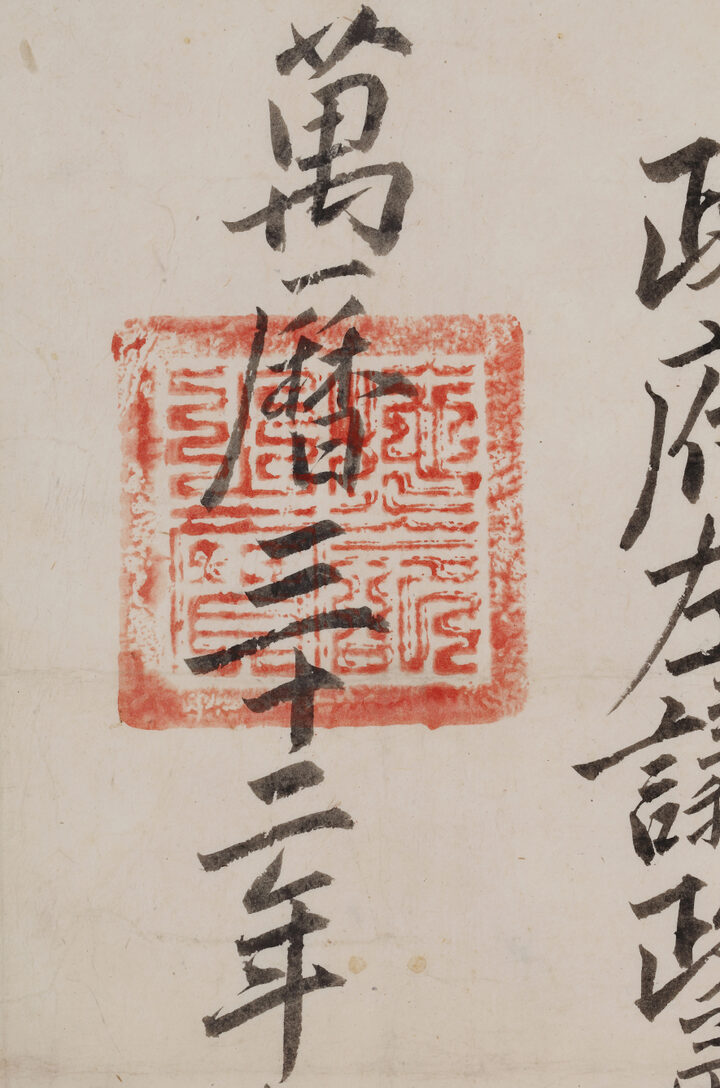 政府左議政
萬曆三十二年